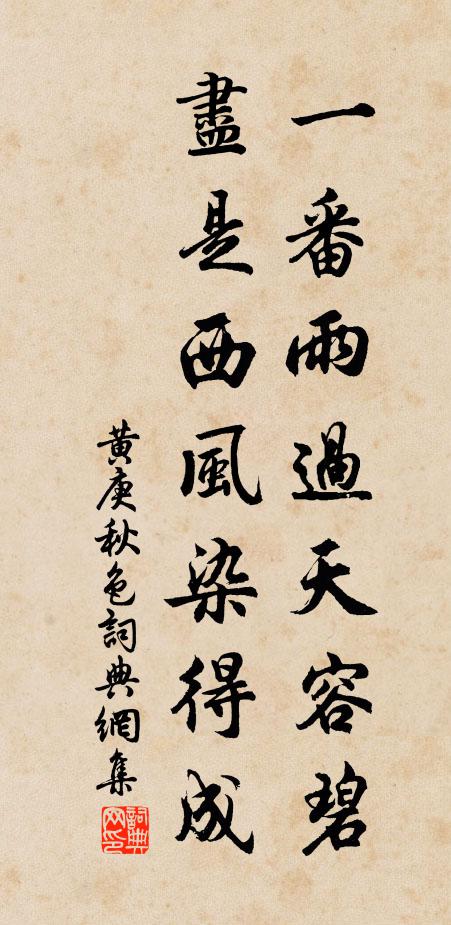 一番雨過天容碧
盡是西風染得成
黃庚秋色詞典網集
詞典网印